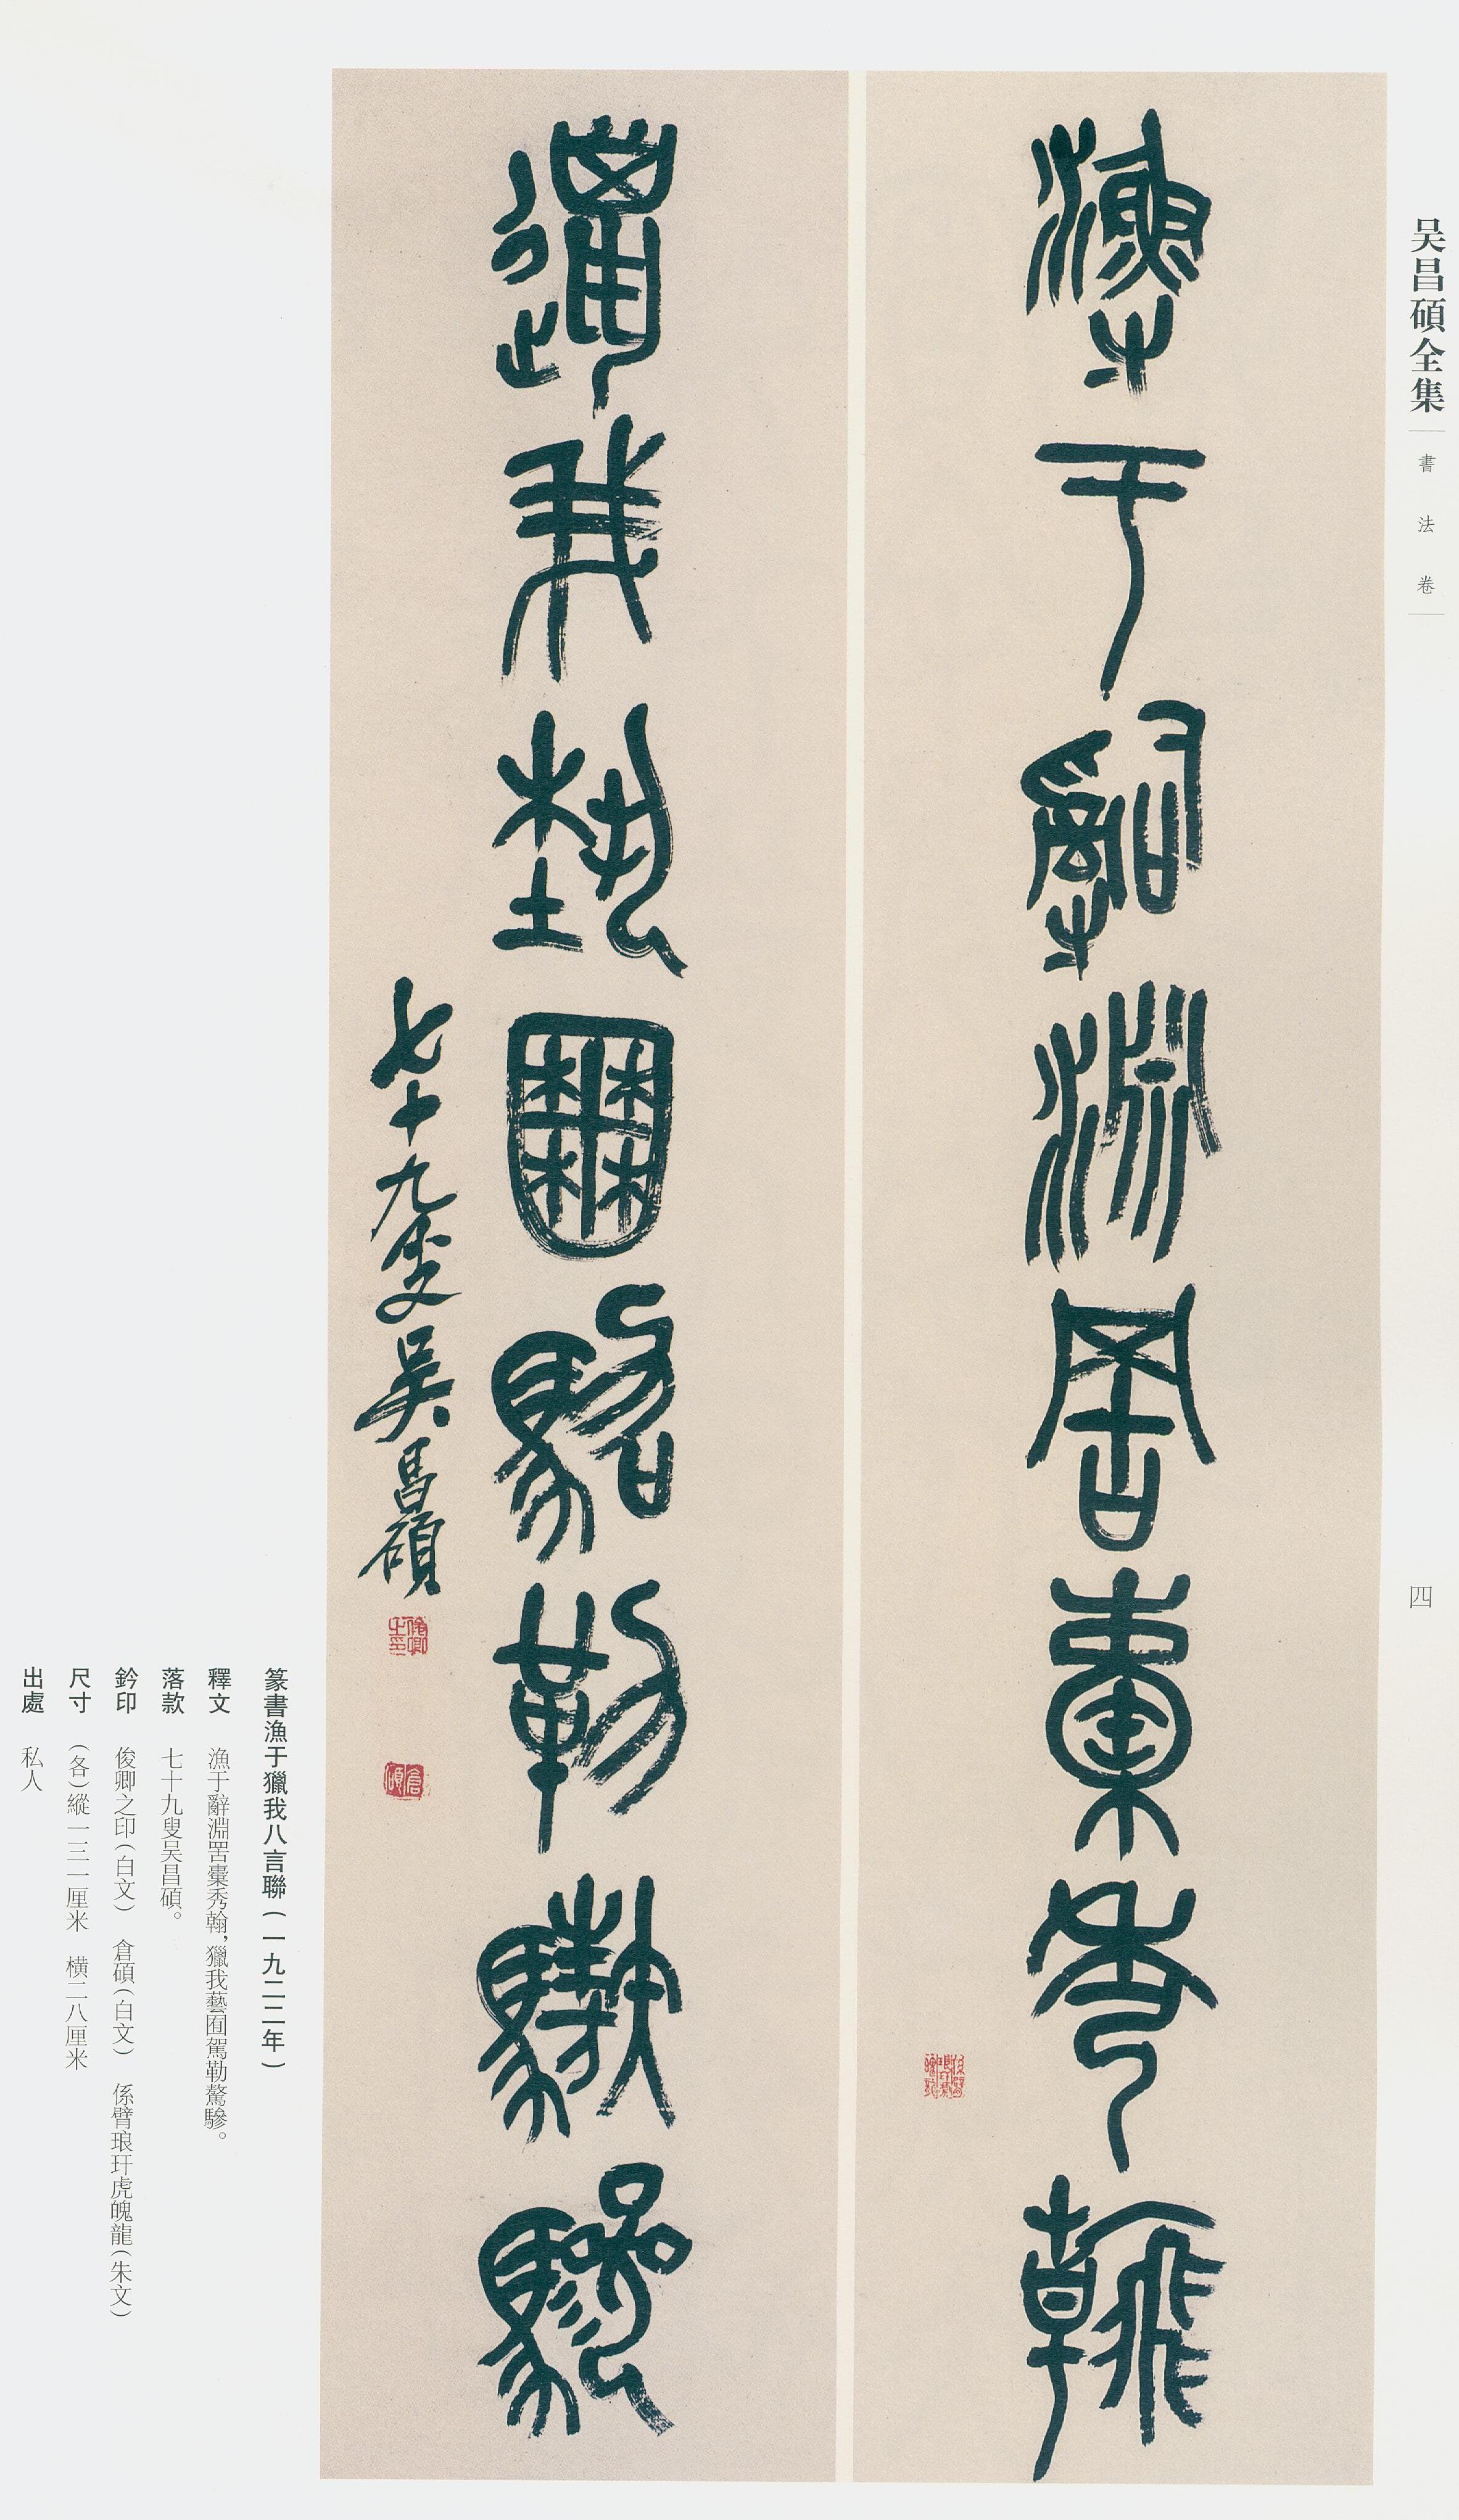 吴昌碩全集
書法卷
四
漁于辭淵罟橐秀翰
獵我藝囿駕勒驁驂
七十九叟吴昌碩
俊卿之印
倉碩
篆書漁于獵我八言聯(一九二二年)
釋文 漁于辭淵罟橐秀翰,獵我藝囿駕勒驁驂。
落款 七十九叟吴昌碩。
鈐印 俊卿之印(白文) 倉碩(白文) 係臂琅玕虎魄龍(朱文)
尺寸 (各)縱一三一厘米 横二八厘米
出處 私人